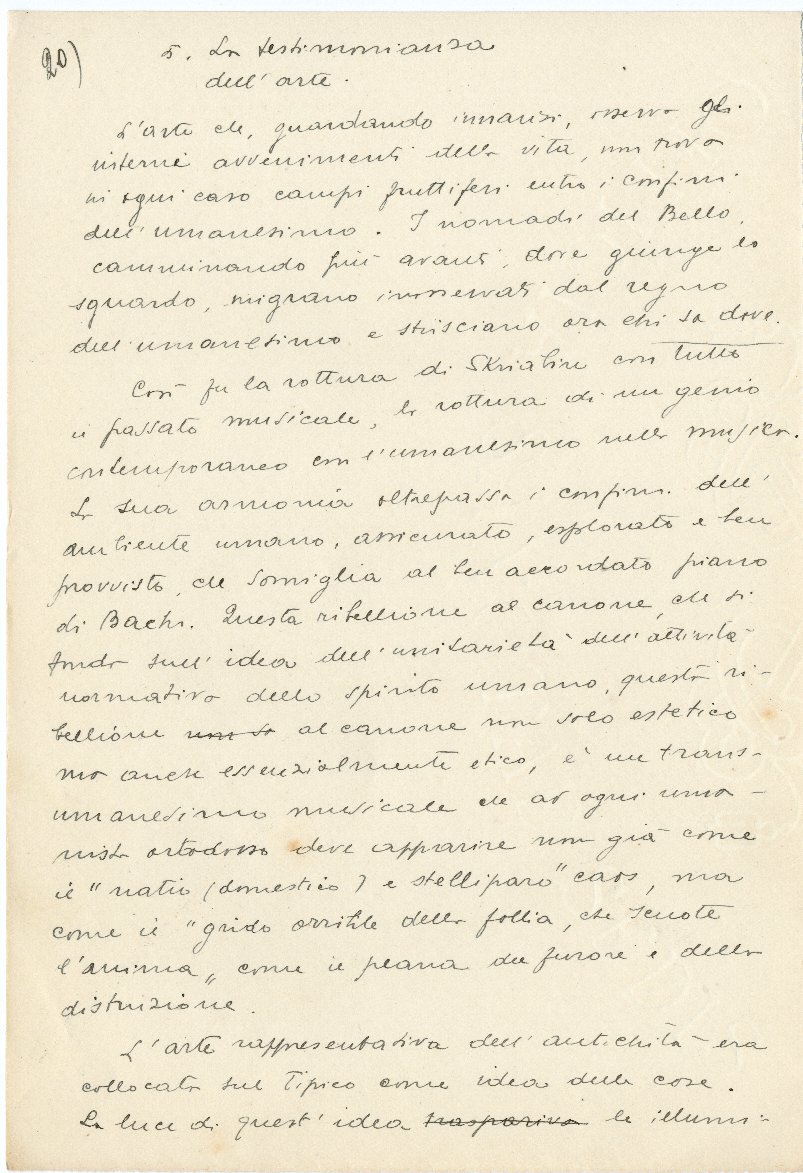 20)
5. La testimonianza
dell'arte.
L'arte che, guardando innanzi, osserva gli
interni avvenimenti della vita, non trova
in ogni caso campi fruttiferi entro i confini
dell'umanesimo. I nomadi del Bello,
camminando più avanti, dove giunge lo
sguardo, migrano inosservati dal regno
dell'umanesimo e strisciano ora chi sa dove.
Così fu la rottura di Skriabin con tutto
il passato musicale, la rottura di un genio
contemporaneo con l'umanesimo nella musica.
La sua armonia oltrepassa i confini dell'
ambiente umano, assicurato, esplorato e ben
provvisto, che somiglia al ben accordato piano
di Bach. Questa ribellione al canone, che si
fonda sull'idea dell'unitarietà dell'attività
normativa dello spirito umano, questa ri-
bellione non so al canone non solo estetico
ma anche essenzialmente etico, è un trans-
umanesimo musicale che ad ogni uma-
nista ortodosso deve apparire non già come
il "natio (domestico) e stelliparo" caos, ma
come il "grido orribile della follia, che scuote
l'anima" come il peana del furore e della
distruzione.
L'arte rappresentativa dell'antichità era
collocata sul Tipico come idea delle cose.
La luce di quest'idea traspariva le illumi-